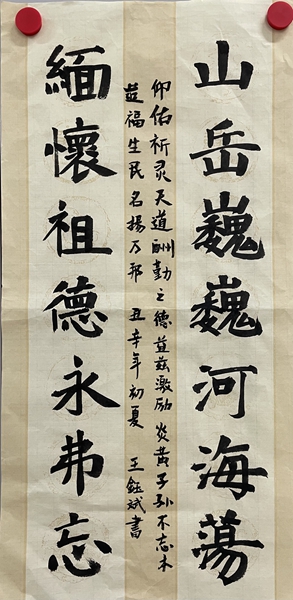 山岳巍巍河海蕩
仰佑祈灵天道酬勤之德益兹激励炎黄子孙不忘本
益福生民名揚乃邦 丑辛年初夏 王鈺斌書
緬懷祖德永弗忘